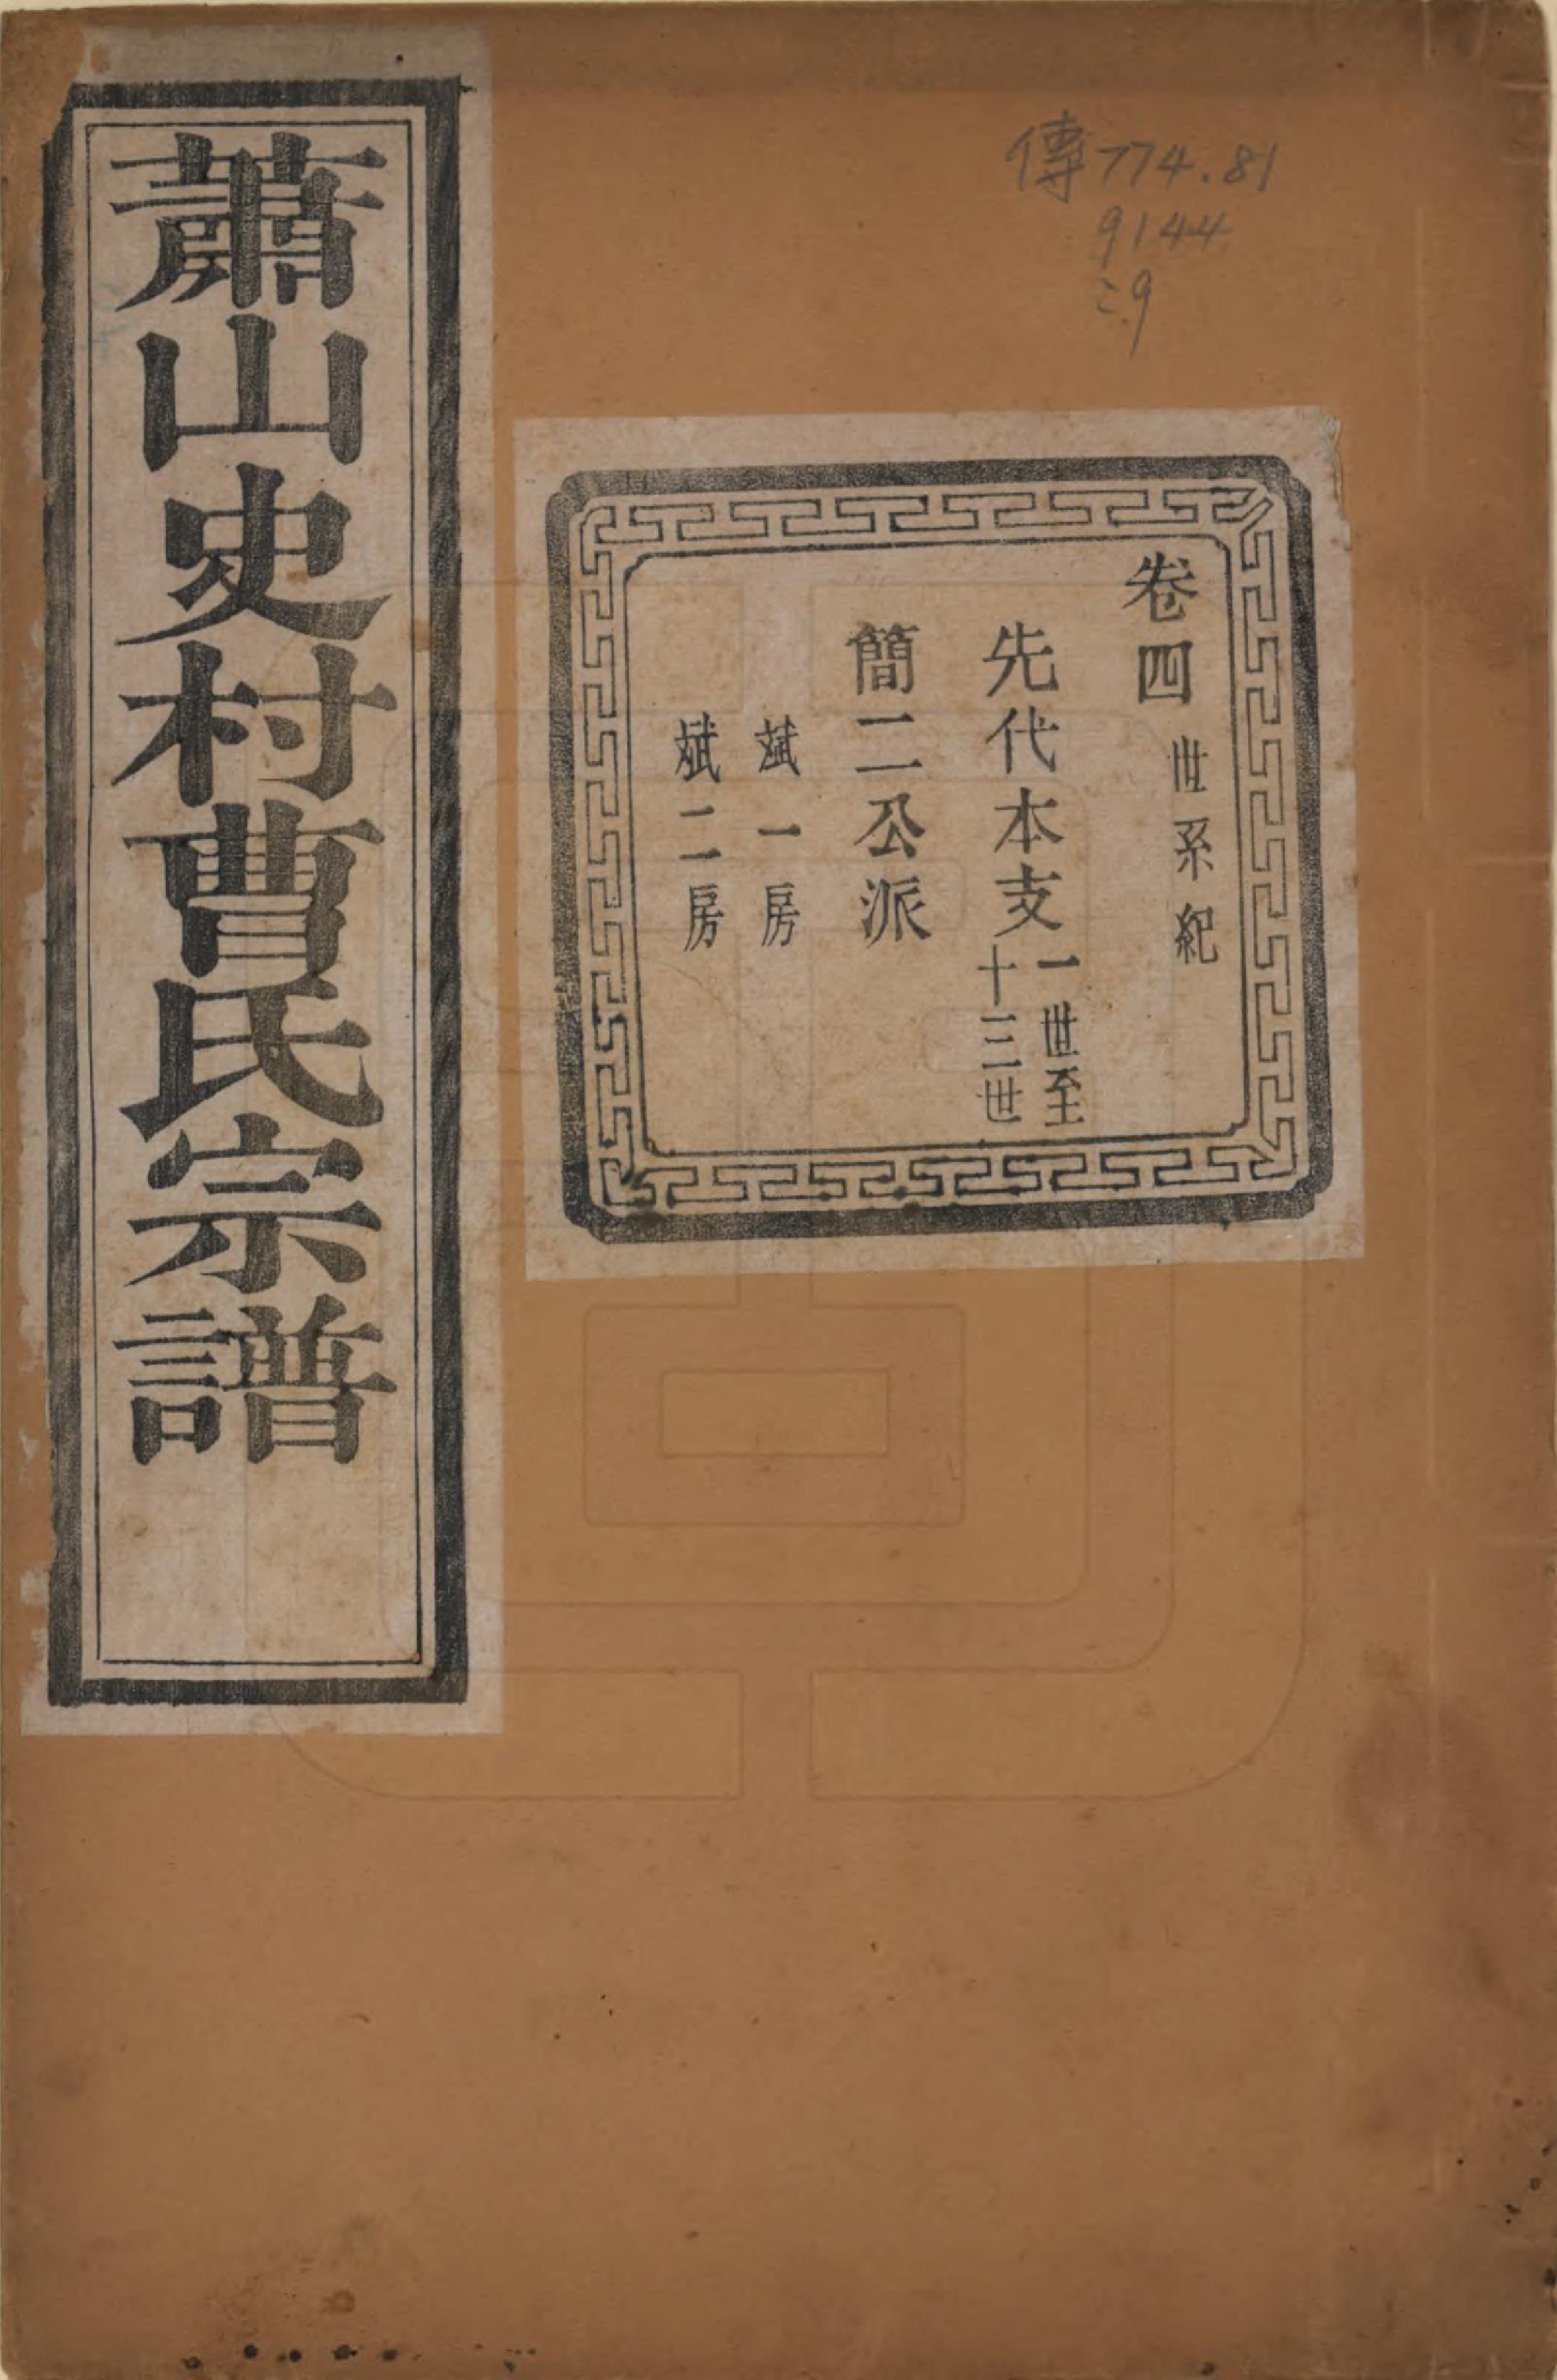 傳774.81
9144
:9
卷四 世系紀
先代本支 一世至
十三世
簡二公派
斌一房
斌二房
蕭山史村曹氏宗譜